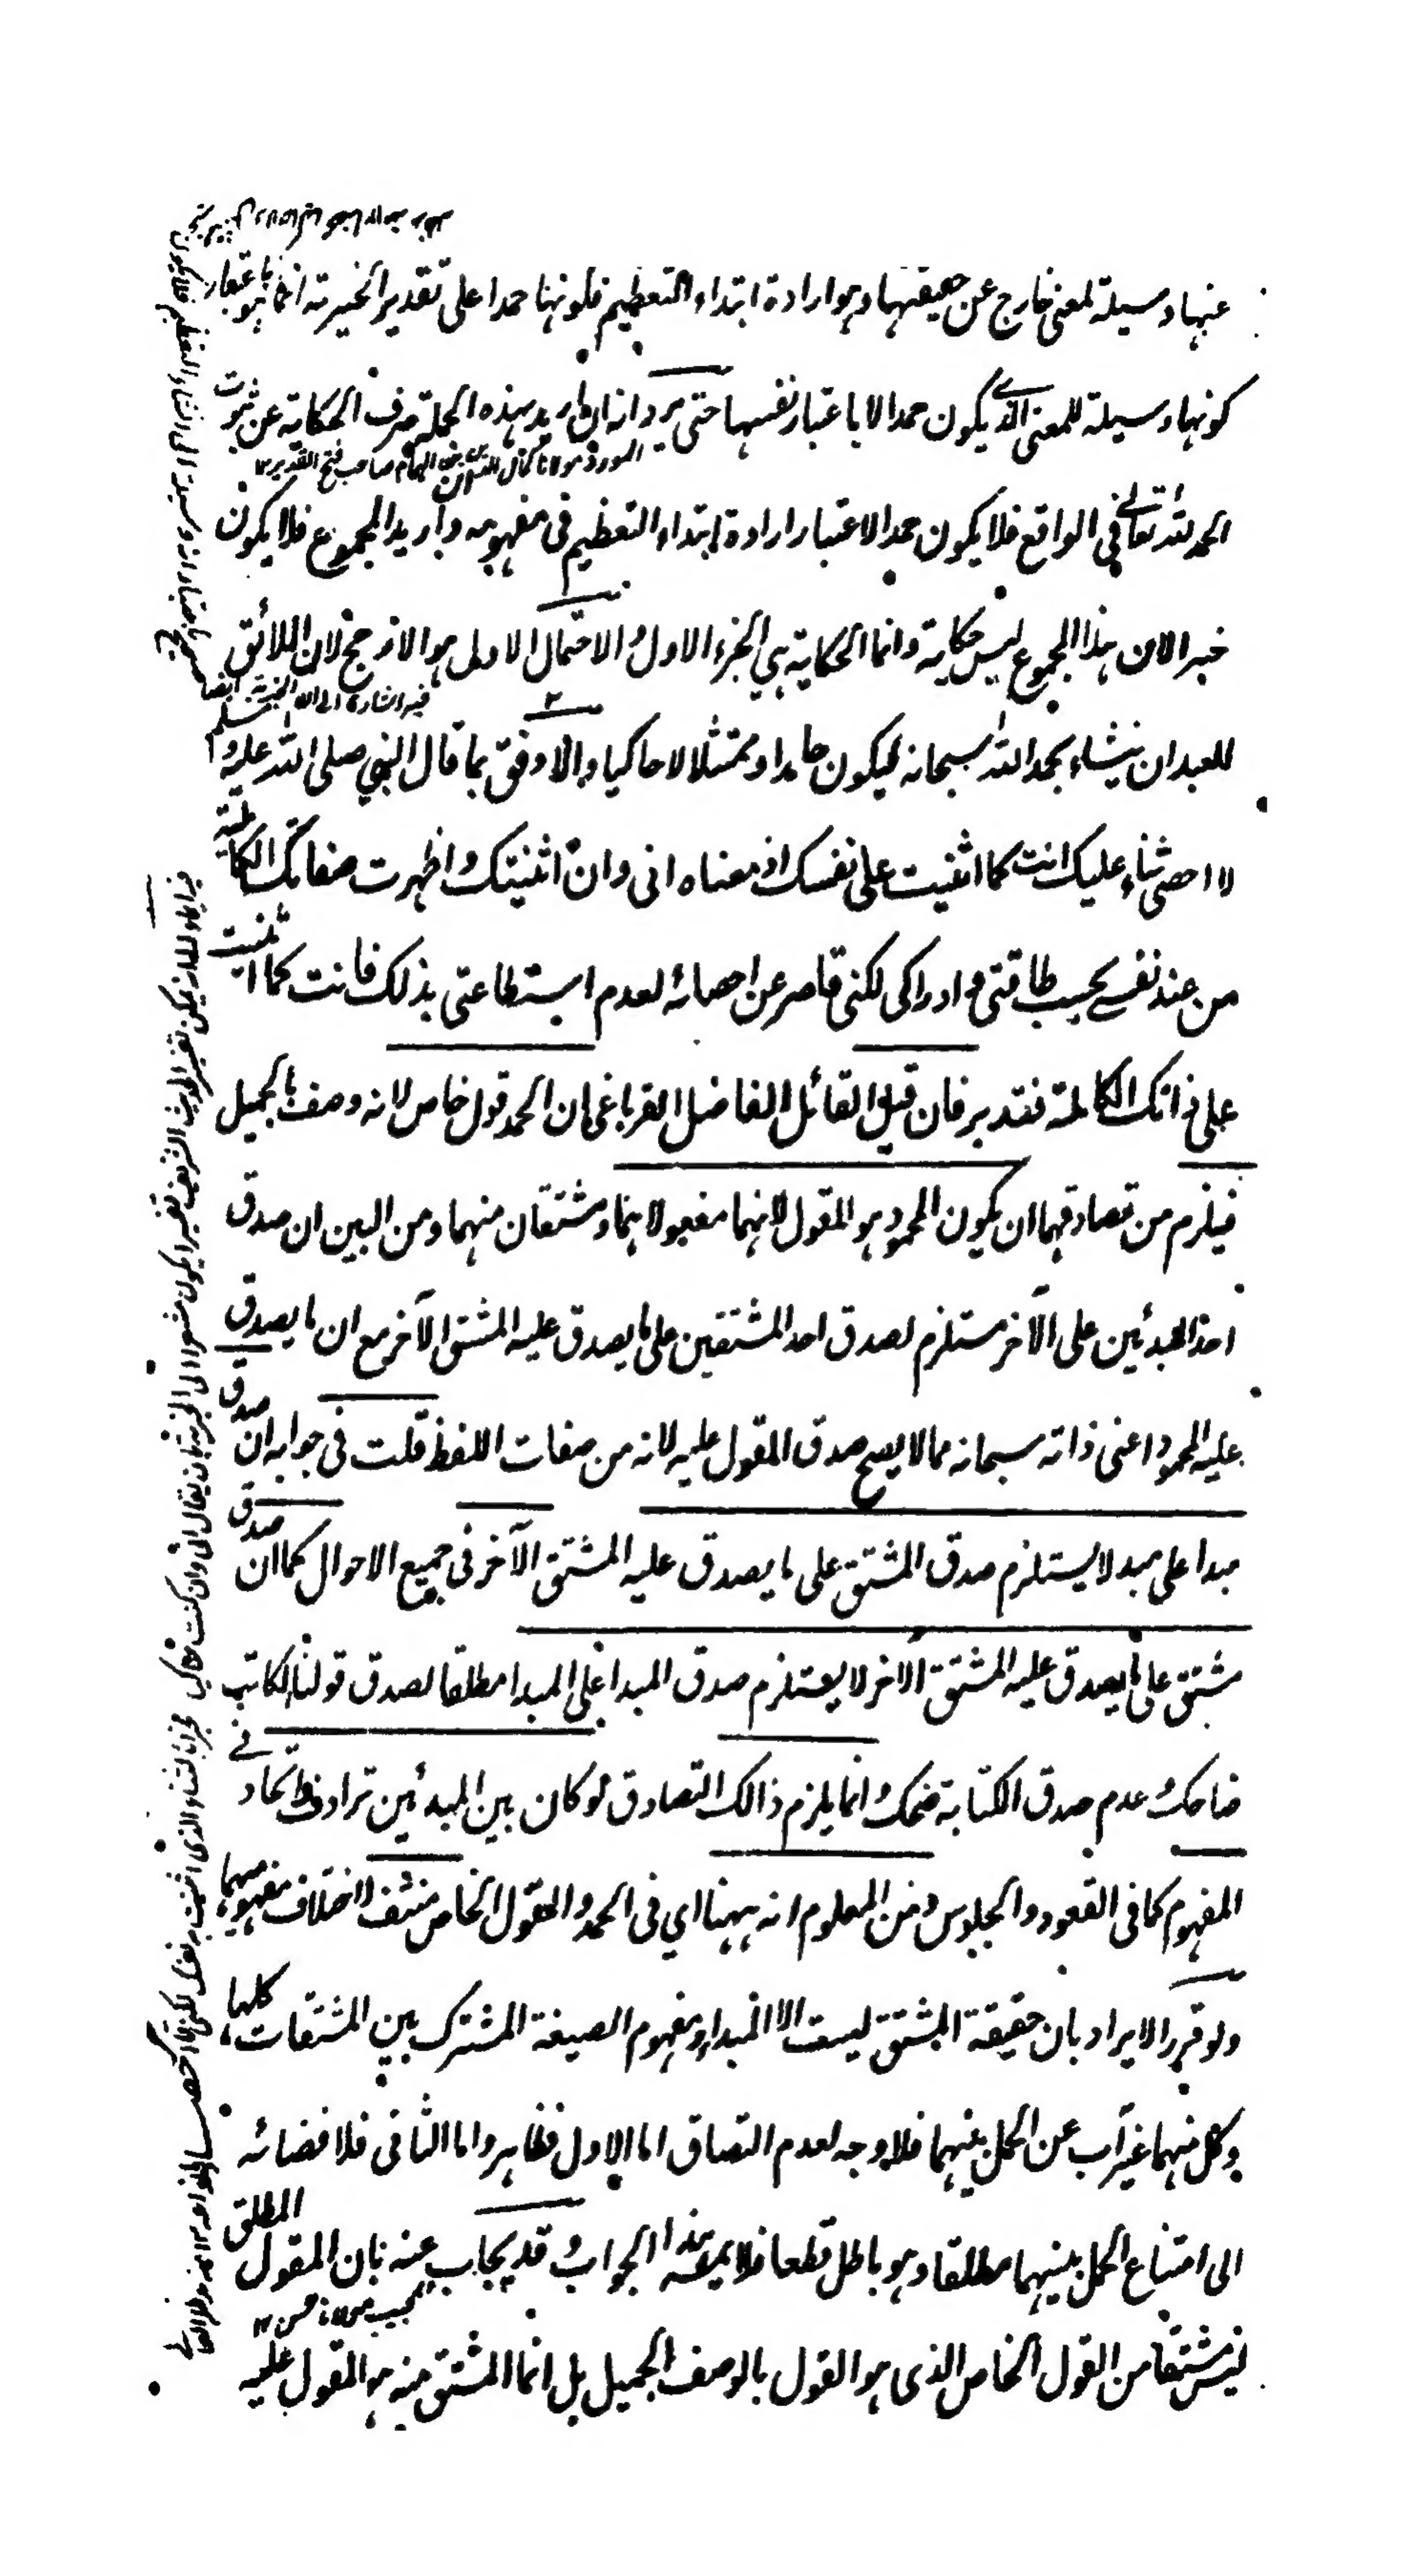 عنها وسيلة لمعنى خارج عن حقيقتها وهو ارادة ابتداء التعظيم فكونها حمدا على تقدير الخبرية انما هو باعتبار
كونها وسيلة للمعنى الذي يكون حمدا لا باعتبار نفسها حتى يرد انه ان اريد بهذه الجملة صرف الحكاية عن ثبوت
المورد مولانا كمال الدين بن الهمام صاحب فتح القدير ١٢
الحمد لله تعالى في الواقع فلا يكون حمدا لاعتبار ارادة ابتداء التعظيم في مفهومه وان اريد المجموع فلا يكون
خبرا لان هذا المجموع ليس حكاية وانما الحكاية هي الجزء الاول والاحتمال الاول هو الارجح لان اللائق
فيه اشارة الى ان الخبرية ايضا
للعبد ان ينشاء بحمد الله سبحانه ليكون حامدا وممتثلا لا حاكيا والاوفق بما قال النبي صلى الله عليه وسلم
لا احصي ثناء عليك انت كما اثنيت على نفسك اذ معناه اني وان اثنيتك واظهرت صفاتك الكاملة
من عند نفسي بحسب طاقتي وادراكي لكني قاصر عن احصائه لعدم استطاعتي بذلك فانت كما اثنيت
على ذاتك الكاملة فتدبر فان قيل القائل الفاضل القرباغي ان الحمد قول خاص لانه وصف بالجميل
فيلزم من تصادقهما ان يكون المحمود هو المقول لانهما مفعولاهما ومشتقان منهما ومن البين ان صدق
احد المبدئين على الآخر مستلزم لصدق احد المشتقين على ما يصدق عليه المشتق الآخر مع ان ما يصدق
عليه المحمود اعني ذاته سبحانه مما لا يصح صدق المقول عليه لانه من صفات اللفظ قلت في جوابه ان صدق
مبدا على مبدا لا يستلزم صدق المشتق على ما يصدق عليه المشتق الآخر في جميع الاحوال كما ان صدق
مشتق على ما يصدق عليه المشتق الآخر لا يستلزم صدق المبدا على المبدا مطلقا لصدق قولنا الكاتب
ضاحك وعدم صدق الكتابة ضحك وانما يلزم ذالك التصادق لو كان بين المبدئين ترادف واتحاد في
المفهوم كما في القعود والجلوس ومن المعلوم انه ههنا اي في الحمد والقول الخاص منتف لاختلاف مفهوميهما
ولو قرر الايراد بان حقيقة المشتق ليست الا المبداء ومفهوم الصيغة المشترك بين المشتقات كلها
وكل منهما غير آب عن الحمل بينهما فلا وجه لعدم التصاق اما الاول فظاهر واما الثاني فلافضائه
الى امتناع الحمل بينهما مطلقا وهو باطل قطعا فلا يمسه هذا الجواب وقد يجاب عنه بان المقول المطلق
المجيب مولانا حسن ١٢
ليس مشتقا من القول الخاص الذي هو القول بالوصف الجميل بل انما المشتق منه هو المقول عليه